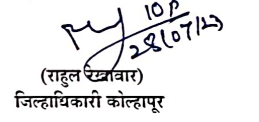 10P
28/07/23
(राहुल रेखावार)
जिल्हाधिकारी कोल्हापूर